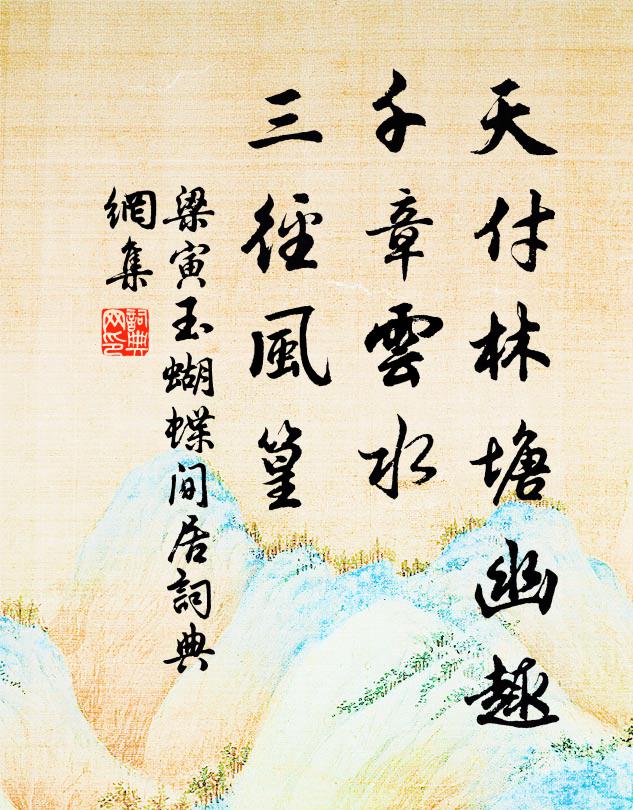 天付林塘幽趣
千章雲水
三徑風篁
梁寅玉蝴蝶间居詞典
網集
詞典網印